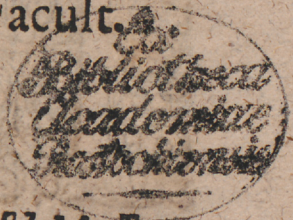 acult.
Ex
Bibliotheca
Academiae
Rostochiensi